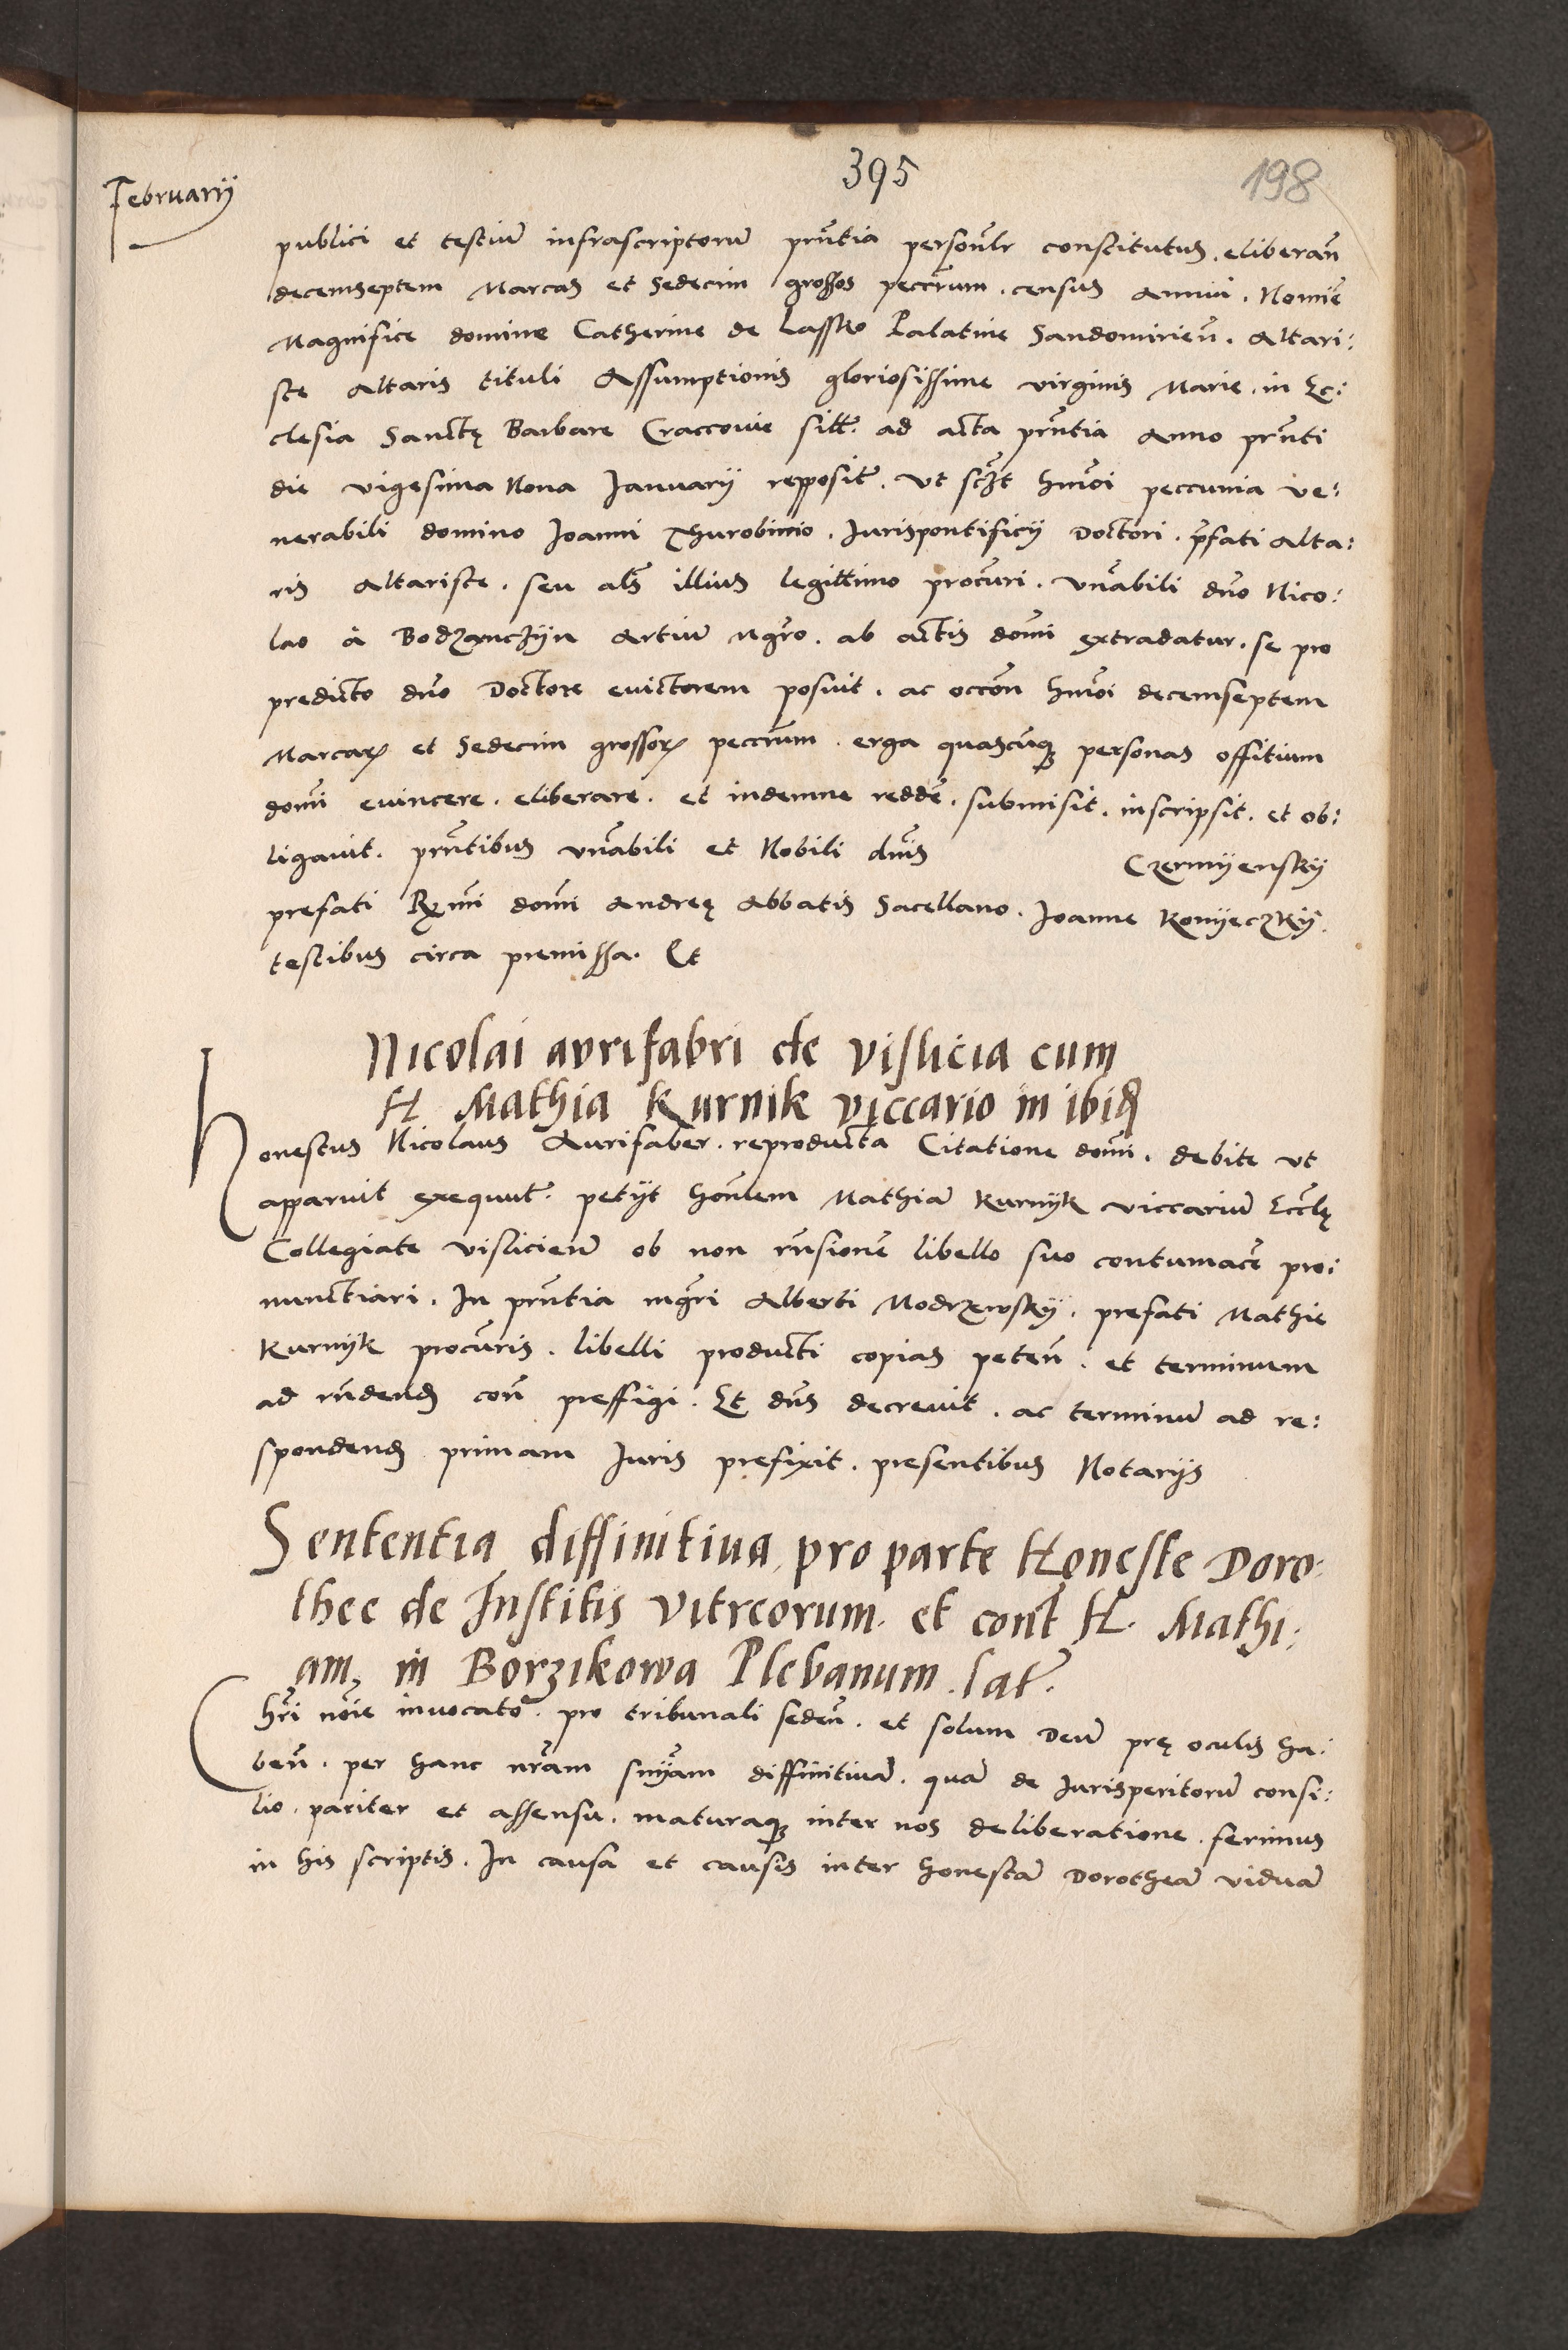 395
198
Februarij
publici et testiũ infrascriptorũ prñtia personlr constitutus . eliberañ
decemseptem Marcas et Sedecim grossos peccrum . census annui . Nomie
Magnifice domine Catherine de Lassko Palatine Sandomirieñ . Altari:
ste Altaris tituli Assumptionis gloriosissime virginis Marie . in Ec:
clesia Sanctę Barbare Craccovie sitt̃ . ad acta prñtia Anno prñti
die vigesima Nona Januarij repposit̃ . Ut sczt hmoi peccunia ve:
nerabili domino Joanni Thurobinio . Jurispontificij Doctori . p̃fati Alta:
ris Altariste . seu als illius legittimo procuri . vñabili dño Nico:
lao à Bodzanczijn Artiũ mgro . ab actis domi extradatur . se pro
predicto dño Doctore evictorem posuit . ac occõn hmoi decemseptem
Marcarꝝ et Sedecim grossorꝝ peccrum . erga quascũqꝫ personas offitium
domi evincere . eliberare . et indemne redde . submisit . inscripsit . et ob:
ligavit . prñtibus vñabili et Nobili dñis Czermijenskij
prefati Rx̃mi domi Andreę Abbatis Sacellano . Joanne Konijeczkij .
testibus circa premissa . Et
Nicolai aurifabri de Vislicia cum
H Mathia Kurnik viccario in ibiđ
Honestus Nicolaus Aurifaber . reproducta Citatione domi . debite ut
apparuit exequut̃ . petijt honlem Mathiã Kurnijk viccariũ Ecclę
Collegiate visliciẽn ob non rñsionẽ libello suo contumacẽ pro:
nunctiari . In prñtia mgri Alberti Modrzewskij . prefati Mathie
Kurnijk procuris . libelli producti copias peteñ . et terminum
ad rñdenđ coñ preffigi . Et dñs decrevit . ac terminũ ad re:
spondenđ primam Juris prefixit . presentibus Notarijs
Sententia diffinitiva pro parte Honeste Doro:
thee de Institis vitreorum . et cont̃ H . Mathi:
am, in Borzikowa Plebanum . lat̃ .
Chri noĩe invocato . pro tribunali sedeñ . et solum Deũ prę oculis ha:
beñ . per hanc nr̃am sniam diffinitivã . quã de Jurisperitorũ consi:
lio . pariter et assensu . maturaqꝫ inter nos deliberatione . ferimus
in his scriptis . In causa et causis inter honestã Dorotheã viduã